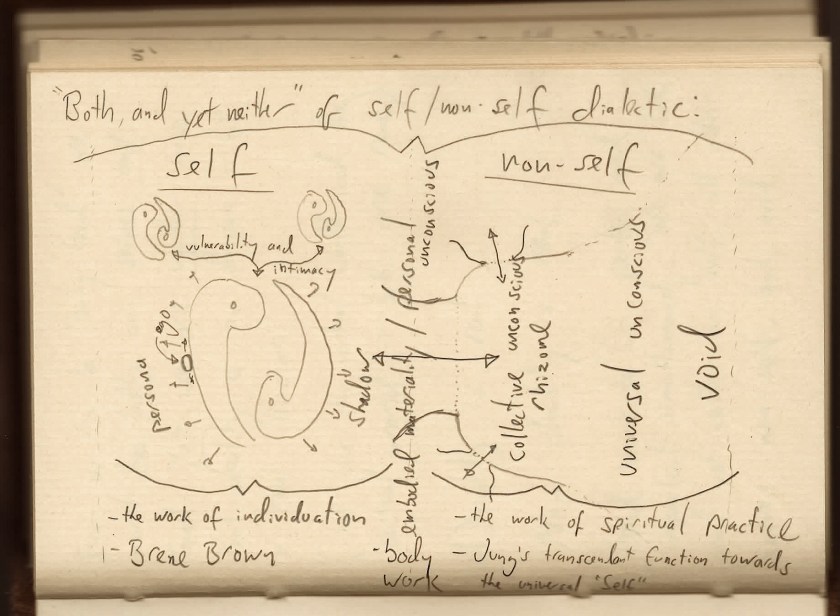 "Both, and yet neither" of self/non-self dialectic:
self
non-self
vulnerability and
intimacy
persona
ego
shadow
embodied materiality / personal
unconscious
collective unconscious
rhizome
universal unconscious
void
- the work of individuation
- Brene Brown
- body
work
- the work of spiritual practice
- Jung's transcendent function towards
the universal "Self"